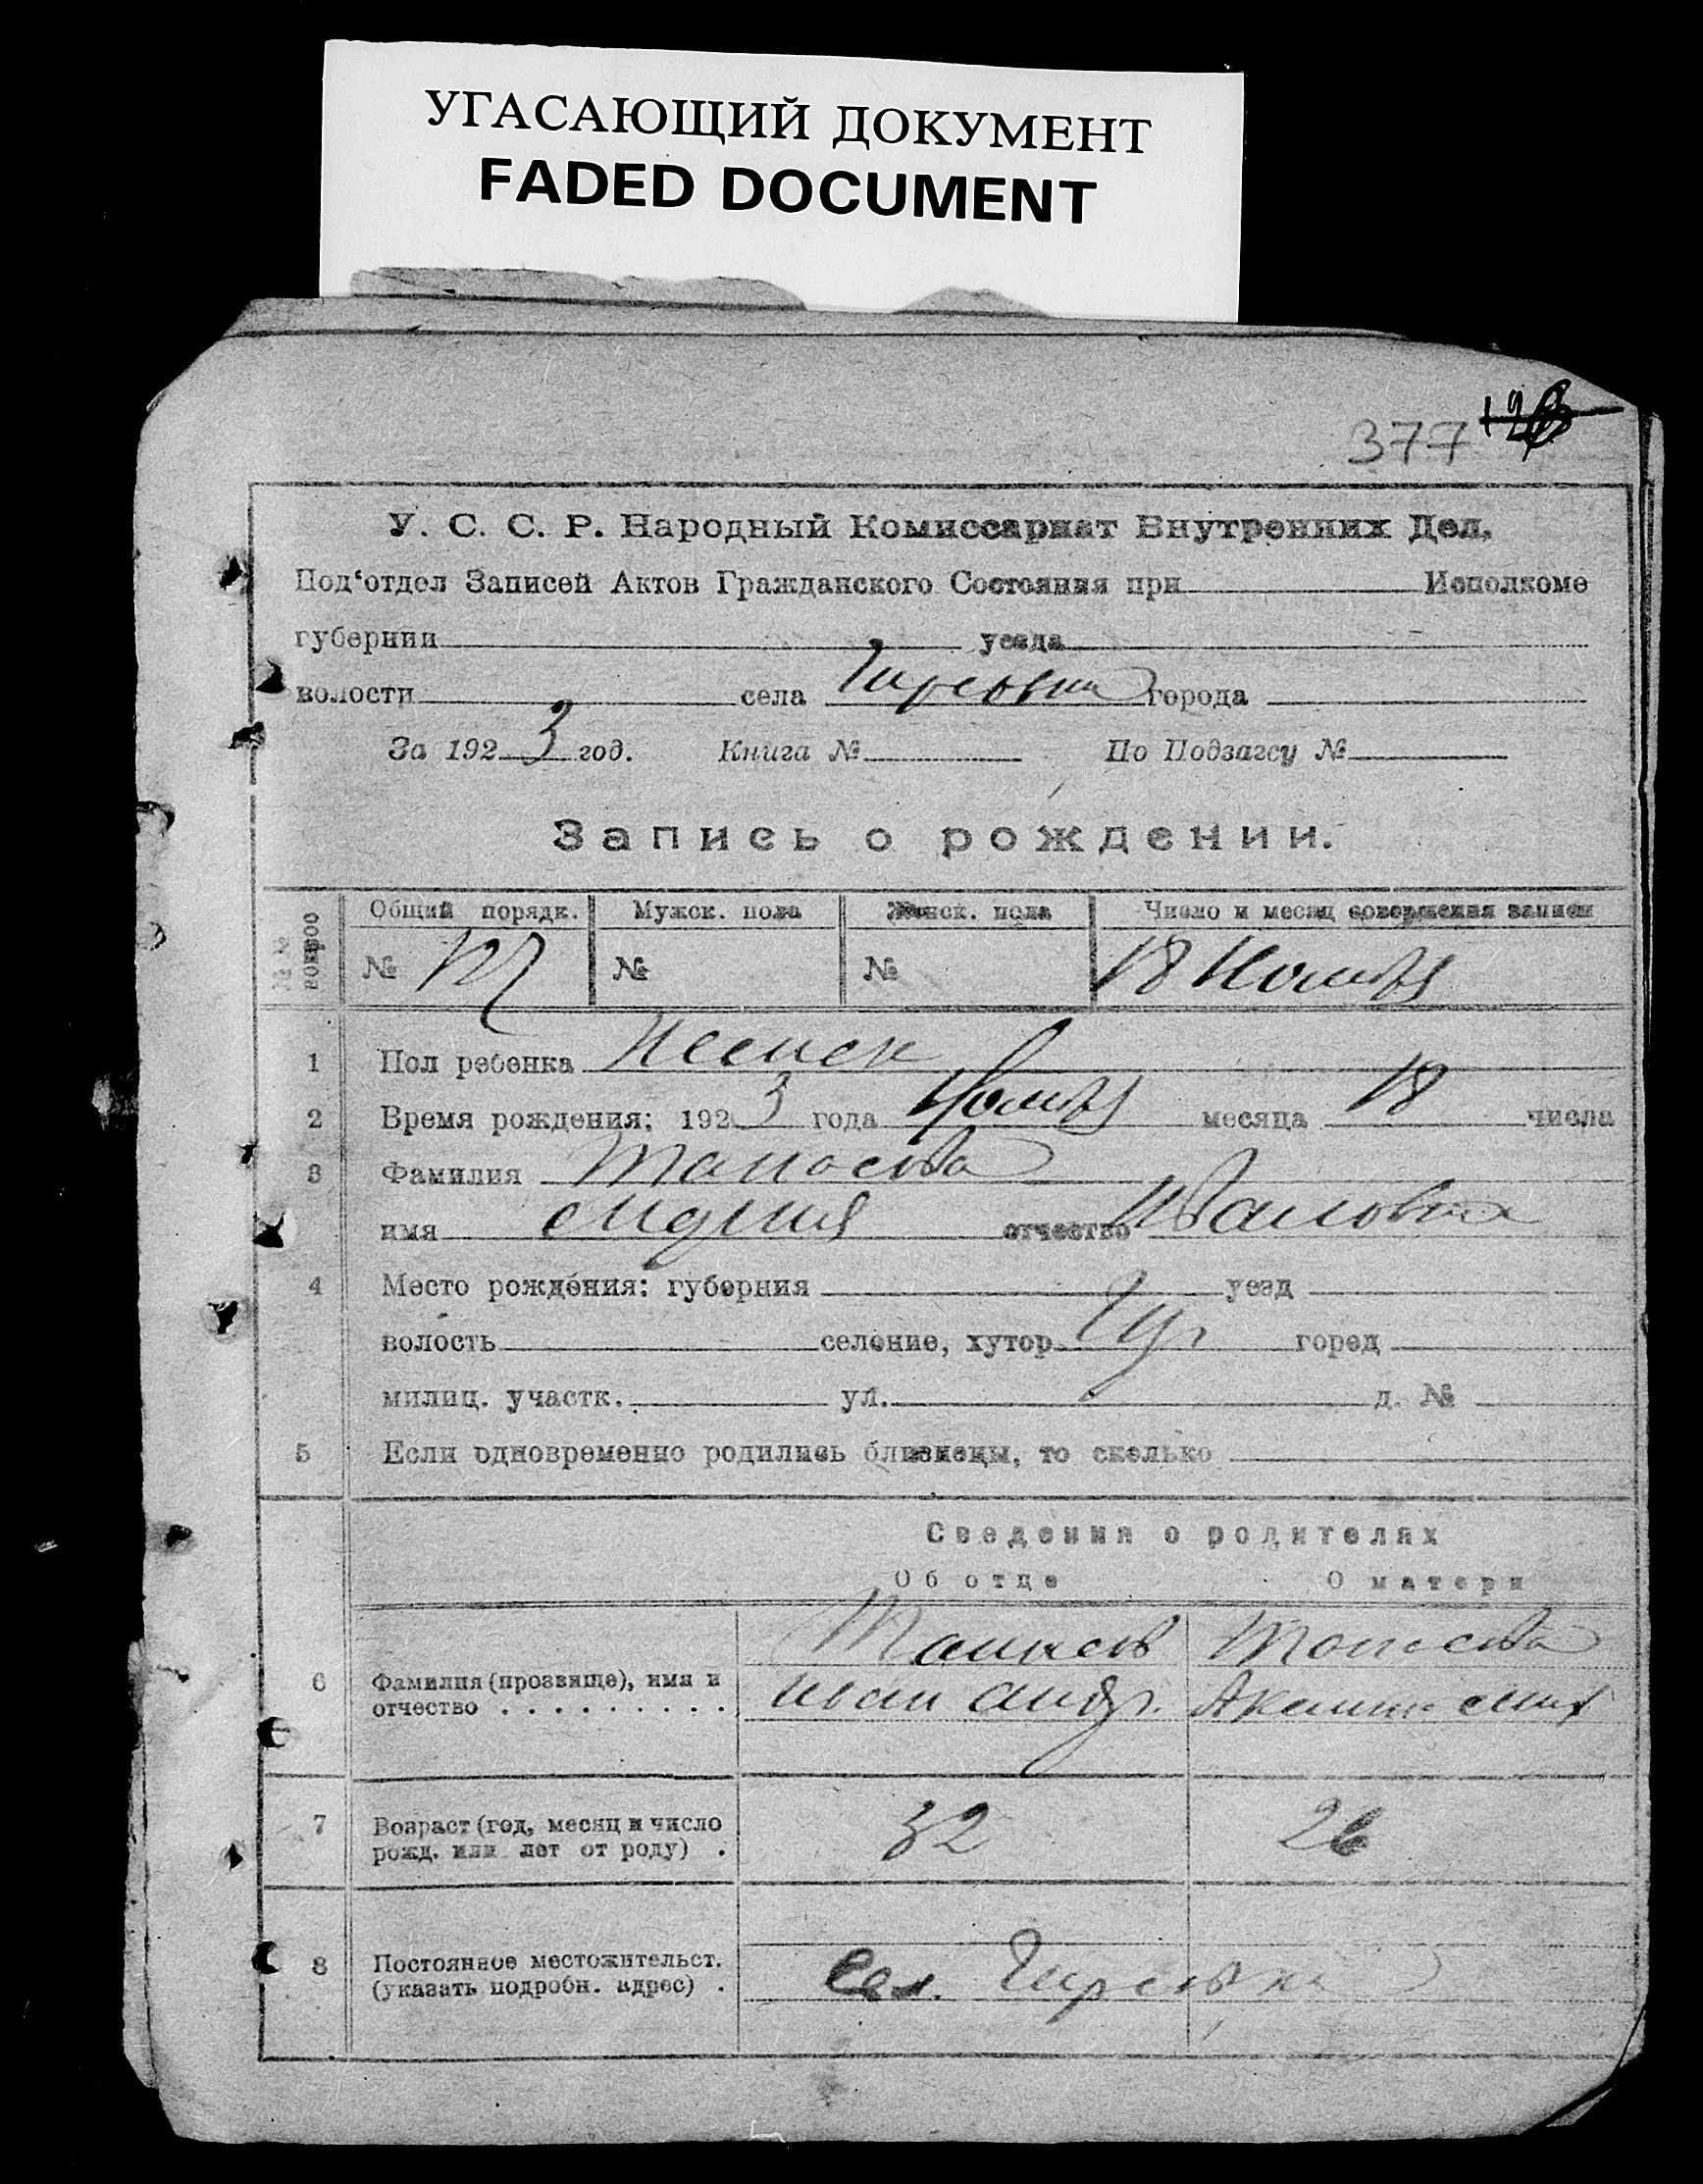 УГАСАЮЩИЙ ДОКУМЕНТ
FADED DOCUMENT
377
У. С. С. Р. Народный Комиссариат Внутренних Дел.
Под‘отдел Записей Актов Гражданского Состояния при Исполкоме
губернии уезда
волости села города
За 1923 год. Книга № По Подзагсу №
Запись о рождении.
№№ вопрос
Общий порядк. Мужск. пола Женск. пола Число и месяц совершения записи
№ 127 № № 18
1 Пол ребенка Женск
2 Время рождения: 1923 года месяца 18 числа
3 Фамилия
имя Лидия отчество Ивановна
4 Место рождения: губерния уезд
волость селение, хутор город
милиц. участк. ул. д. №
5 Если одновременно родились близнецы, то сколько
Сведения о родителях
Об отце О матери
6 Фамилия (прозвище), имя и
отчество . . . . . . . . . Иван Андр.
7 Возраст (год, месяц и число
рожд. или лет от роду) . 32 26
8 Постоянное местожительст.
(указать подробн. адрес) . Сел.